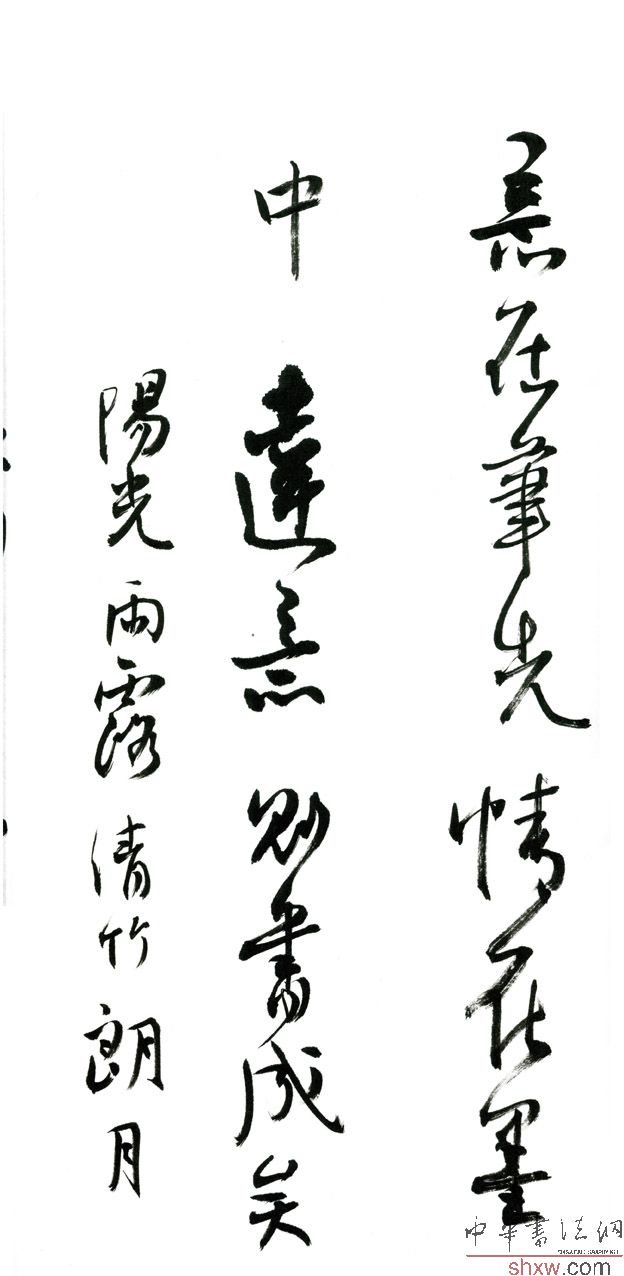 意在筆先情在墨
中達意則書成矣
陽光雨露清竹朗月
中华書法網
shxw.com